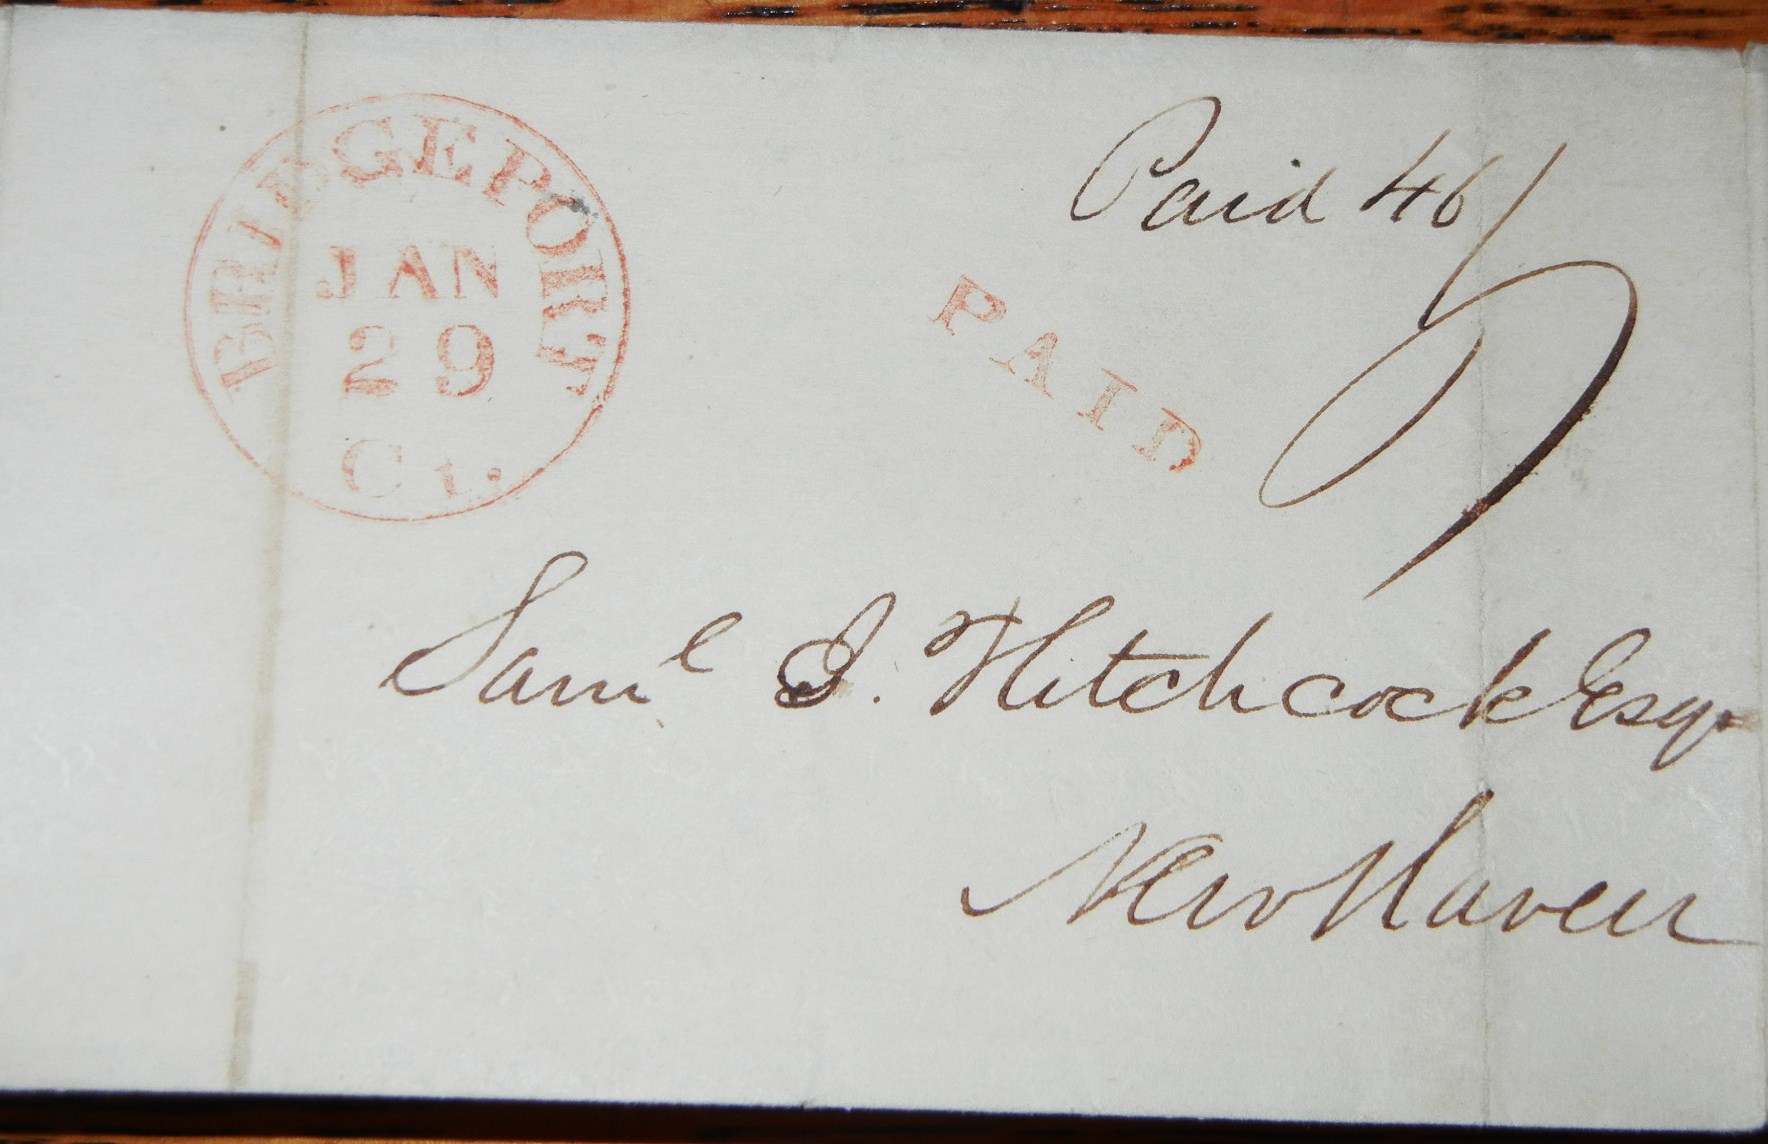 BRIDGEPORT
JAN
29
Ct.
Paid 46
PAID
Saml J. Hitchcock Esq
New Haven